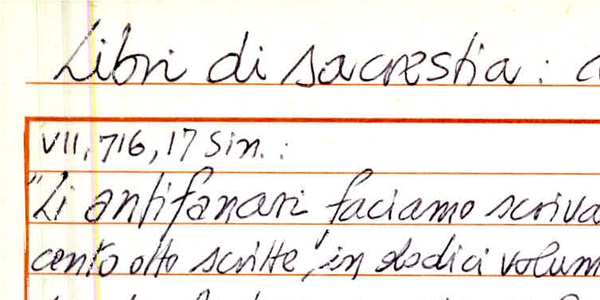 Libri di sacrestia: c
VII, 716, 17 sin.:
"Li antifanari faciamo scriva
cento otto scritte, in dodici volum